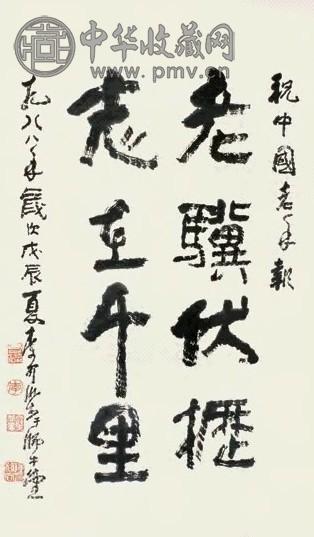 中华收藏网
www.pmv.cn
祝中國老年報
老驥伏櫪
志在千里
一九八八年歲次戊辰夏李可染 師牛堂